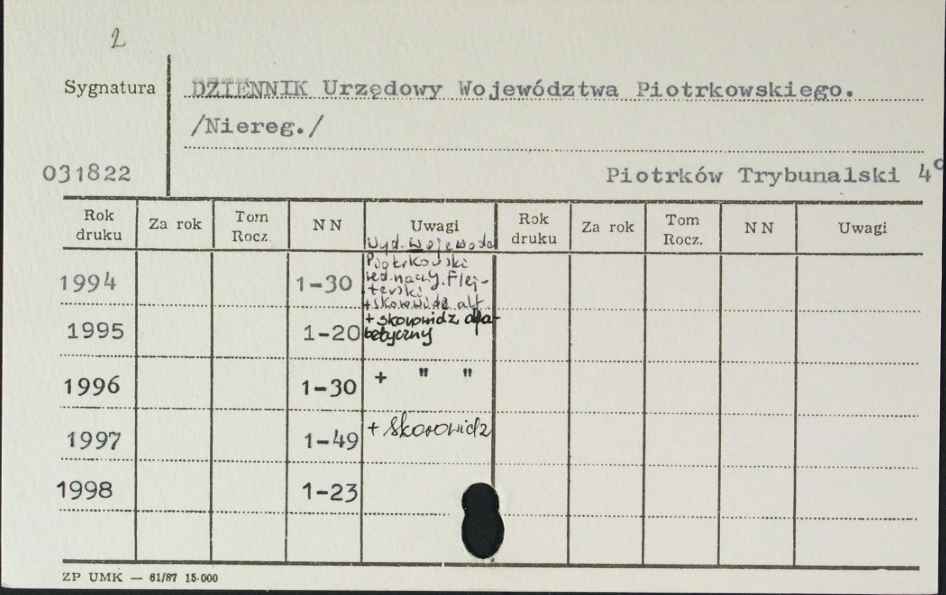 2
Sygnatura
DZIENNIK Urzędowy Województwa Piotrkowskiego.
/Niereg./
031822
Piotrków Trybunalski 4°
Rok druku Za rok Tom Rocz. NN Uwagi Rok druku Za rok Tom Rocz. NN Uwagi
Wyd. Wojewoda
Piotrkowski
red. nacz. J. Flej-
terski
1994 1-30 + skorowidz alf.
1995 1-20 + skorowidz alfa-
betyczny
1996 1-30 + " "
1997 1-49 + skorowidz
1998 1-23
ZP UMK — 61/87 15·000